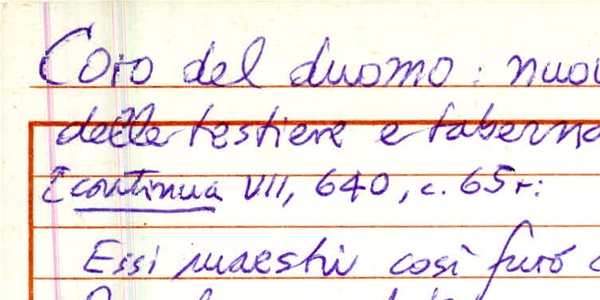 Coro del duomo: nuov
delle testiere e taberna
[continua VII, 640, c. 65r:
Essi maestri così furō